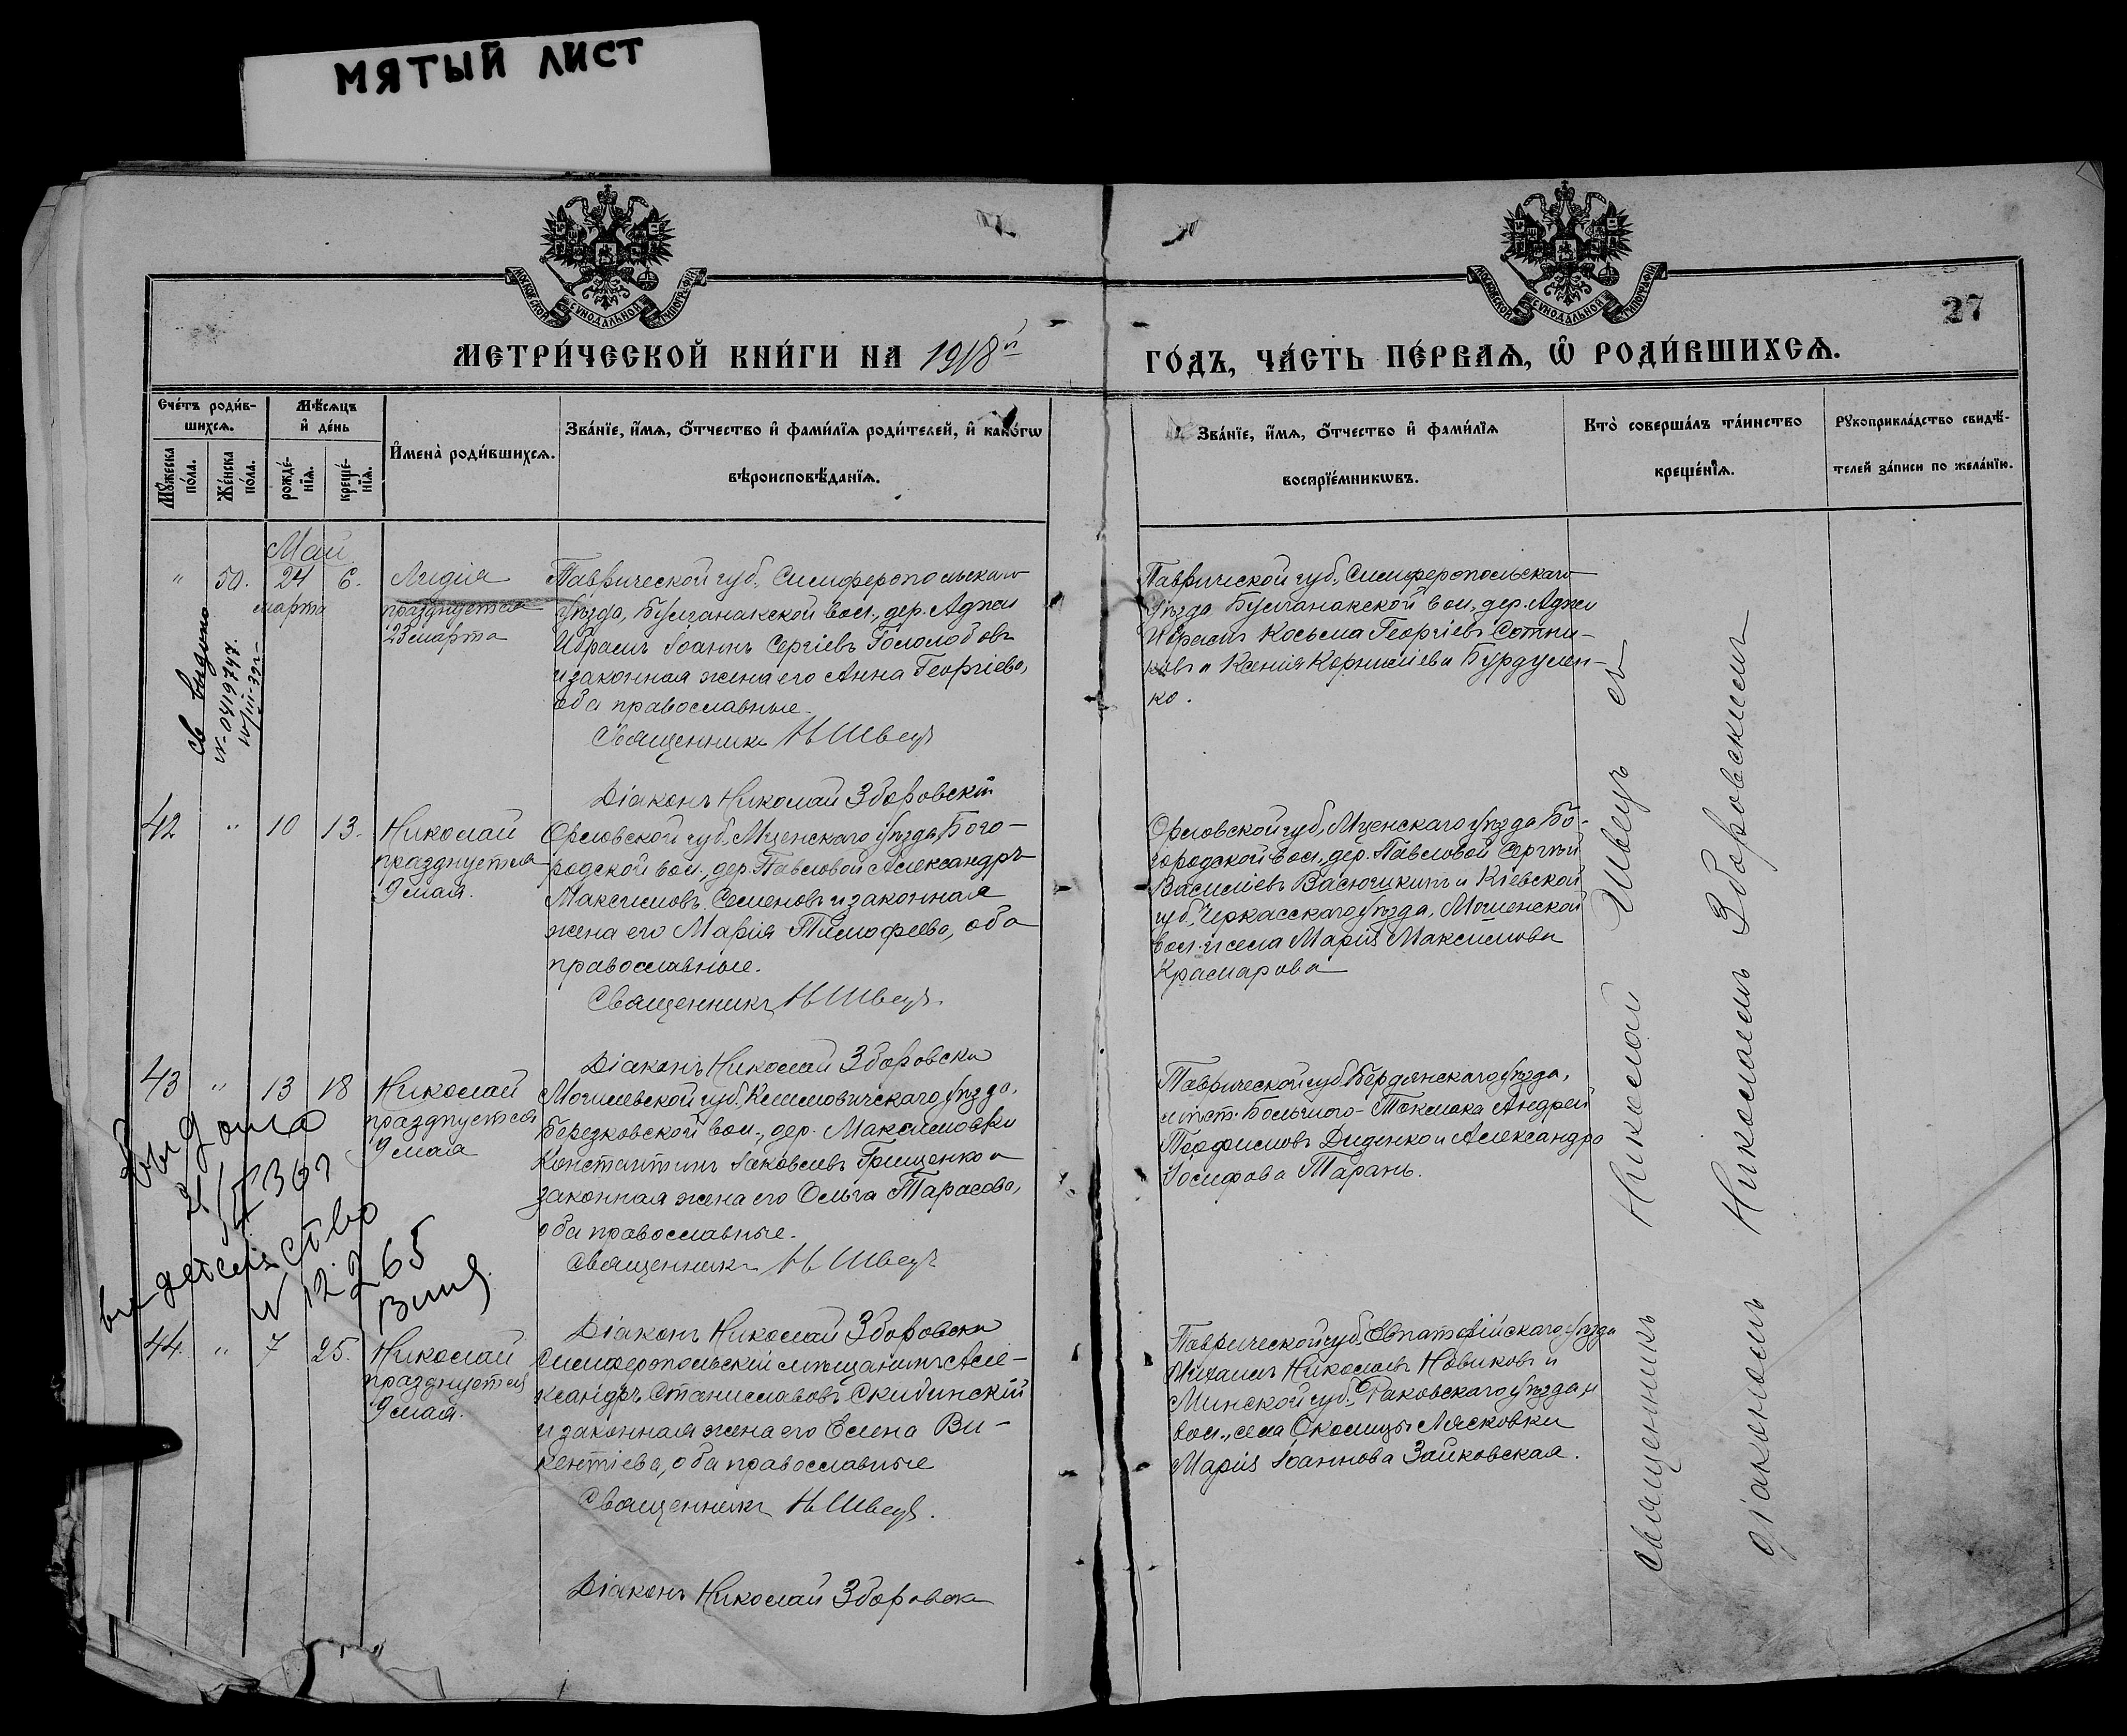 МЯТЫЙ ЛИСТ
МОСКОВСКОЙ СѴНОДАЛЬНОЙ ТИПОГРАФІИ
МОСКОВСКОЙ СѴНОДАЛЬНОЙ ТИПОГРАФІИ
27
МЕТРИ́ЧЕСКОЙ КНИ́ГИ НА 1918й
ГО́ДЪ, ЧА́СТЬ ПЕ́РВАѦ, Ѡ҆ РОДИ́ВШИХСѦ.
Сче́тъ роди́в-
шихсѧ.
Мꙋ́жеска по́ла.
Же́нска по́ла.
Мѣ́сѧцъ
и҆ де́нь
рожде́-
нїѧ.
креще́-
нїѧ.
И҆мена̀ роди́вшихсѧ.
Зва́нїе, и҆́мѧ, ѻ҆́тчество и҆ фами́лїѧ роди́телей, и҆ како́гѡ
вѣроисповѣ́данїѧ.
Зва́нїе, и҆́мѧ, ѻ҆́тчество и҆ фами́лїѧ
воспрїе́мникѡвъ.
Кто̀ соверша́лъ та́инство
креще́нїѧ.
Рꙋкоприкла́дство свидѣ́-
телей за́писи по жела́нїю.
Май
" 50. 24 6.
марта
Лидія
празднуется
23 марта
Таврической губ., Симферопольскаго
уѣзда, Булганакской вол., дер. Аджи
Ибрамъ Іоаннъ Сергіевъ Гололобовъ
и законная жена его Анна Георгіева,
оба православные.
Священникъ Н Швецъ
Діаконъ Николай Зборовскій
Таврической губ., Симферопольскаго
уѣзда Булганакской вол., дер. Аджи
Ибрамъ Косьма Георгіевъ Сотни-
ковъ и Ксенія Корниліева Бурдулен-
ко.
св выдано
№ 0419747
10/III-39г-
42 " 10 13.
Николай
празднуется
9 мая.
Орловской губ., Мценскаго уѣзда, Бого-
родской вол., дер. Павловой Александръ
Максимовъ Семеновъ и законная
жена его Марія Тимофеева, оба
православные.
Священникъ Н Швецъ.
Діаконъ Николай Зборовски
Орловской губ., Мценскаго уѣзда Бо-
городской вол., дер. Павловой Сергѣй
Василіевъ Васючкинъ и Кіевской
губ., Черкасскаго уѣзда, Мошенской
вол. и села Марія Максимова
Крамарова
43 " 13 18
Николай
празднуется
9 мая
Могилевской губ., Климовичскаго уѣзда,
Березковской вол., дер. Максимовки
Константинъ Іаковлевъ Грищенко и
законная жена его Ольга Тарасова,
оба православные.
Священникъ Н Швецъ
Діаконъ Николай Зборовски
Таврической губ. Бердянскаго уѣзда,
мѣст. Большого-Токмака Андрей
Теофиловъ Диденко и Александра
Іосифова Тарань.
выдано
36г
N 12265
44. " 7 25.
Николай
празднуется
9 мая.
Симферопольскій мѣщанинъ Але-
ксандръ Станиславовъ Скибинскій
и законная жена его Елена Ви-
кентіева, оба православные
Священникъ Н Швецъ.
Діаконъ Николай Зборовски
Таврической губ., Евпаторійскаго уѣзда
Михаилъ Николаевъ Новиковъ и
Минской губ., Раковскаго уѣзда и
вол., села Околицы Лясковки
Марія Іоаннова Зайковская.
Священникъ Николай Швецъ съ
діакономъ Николаемъ Зборовскимъ